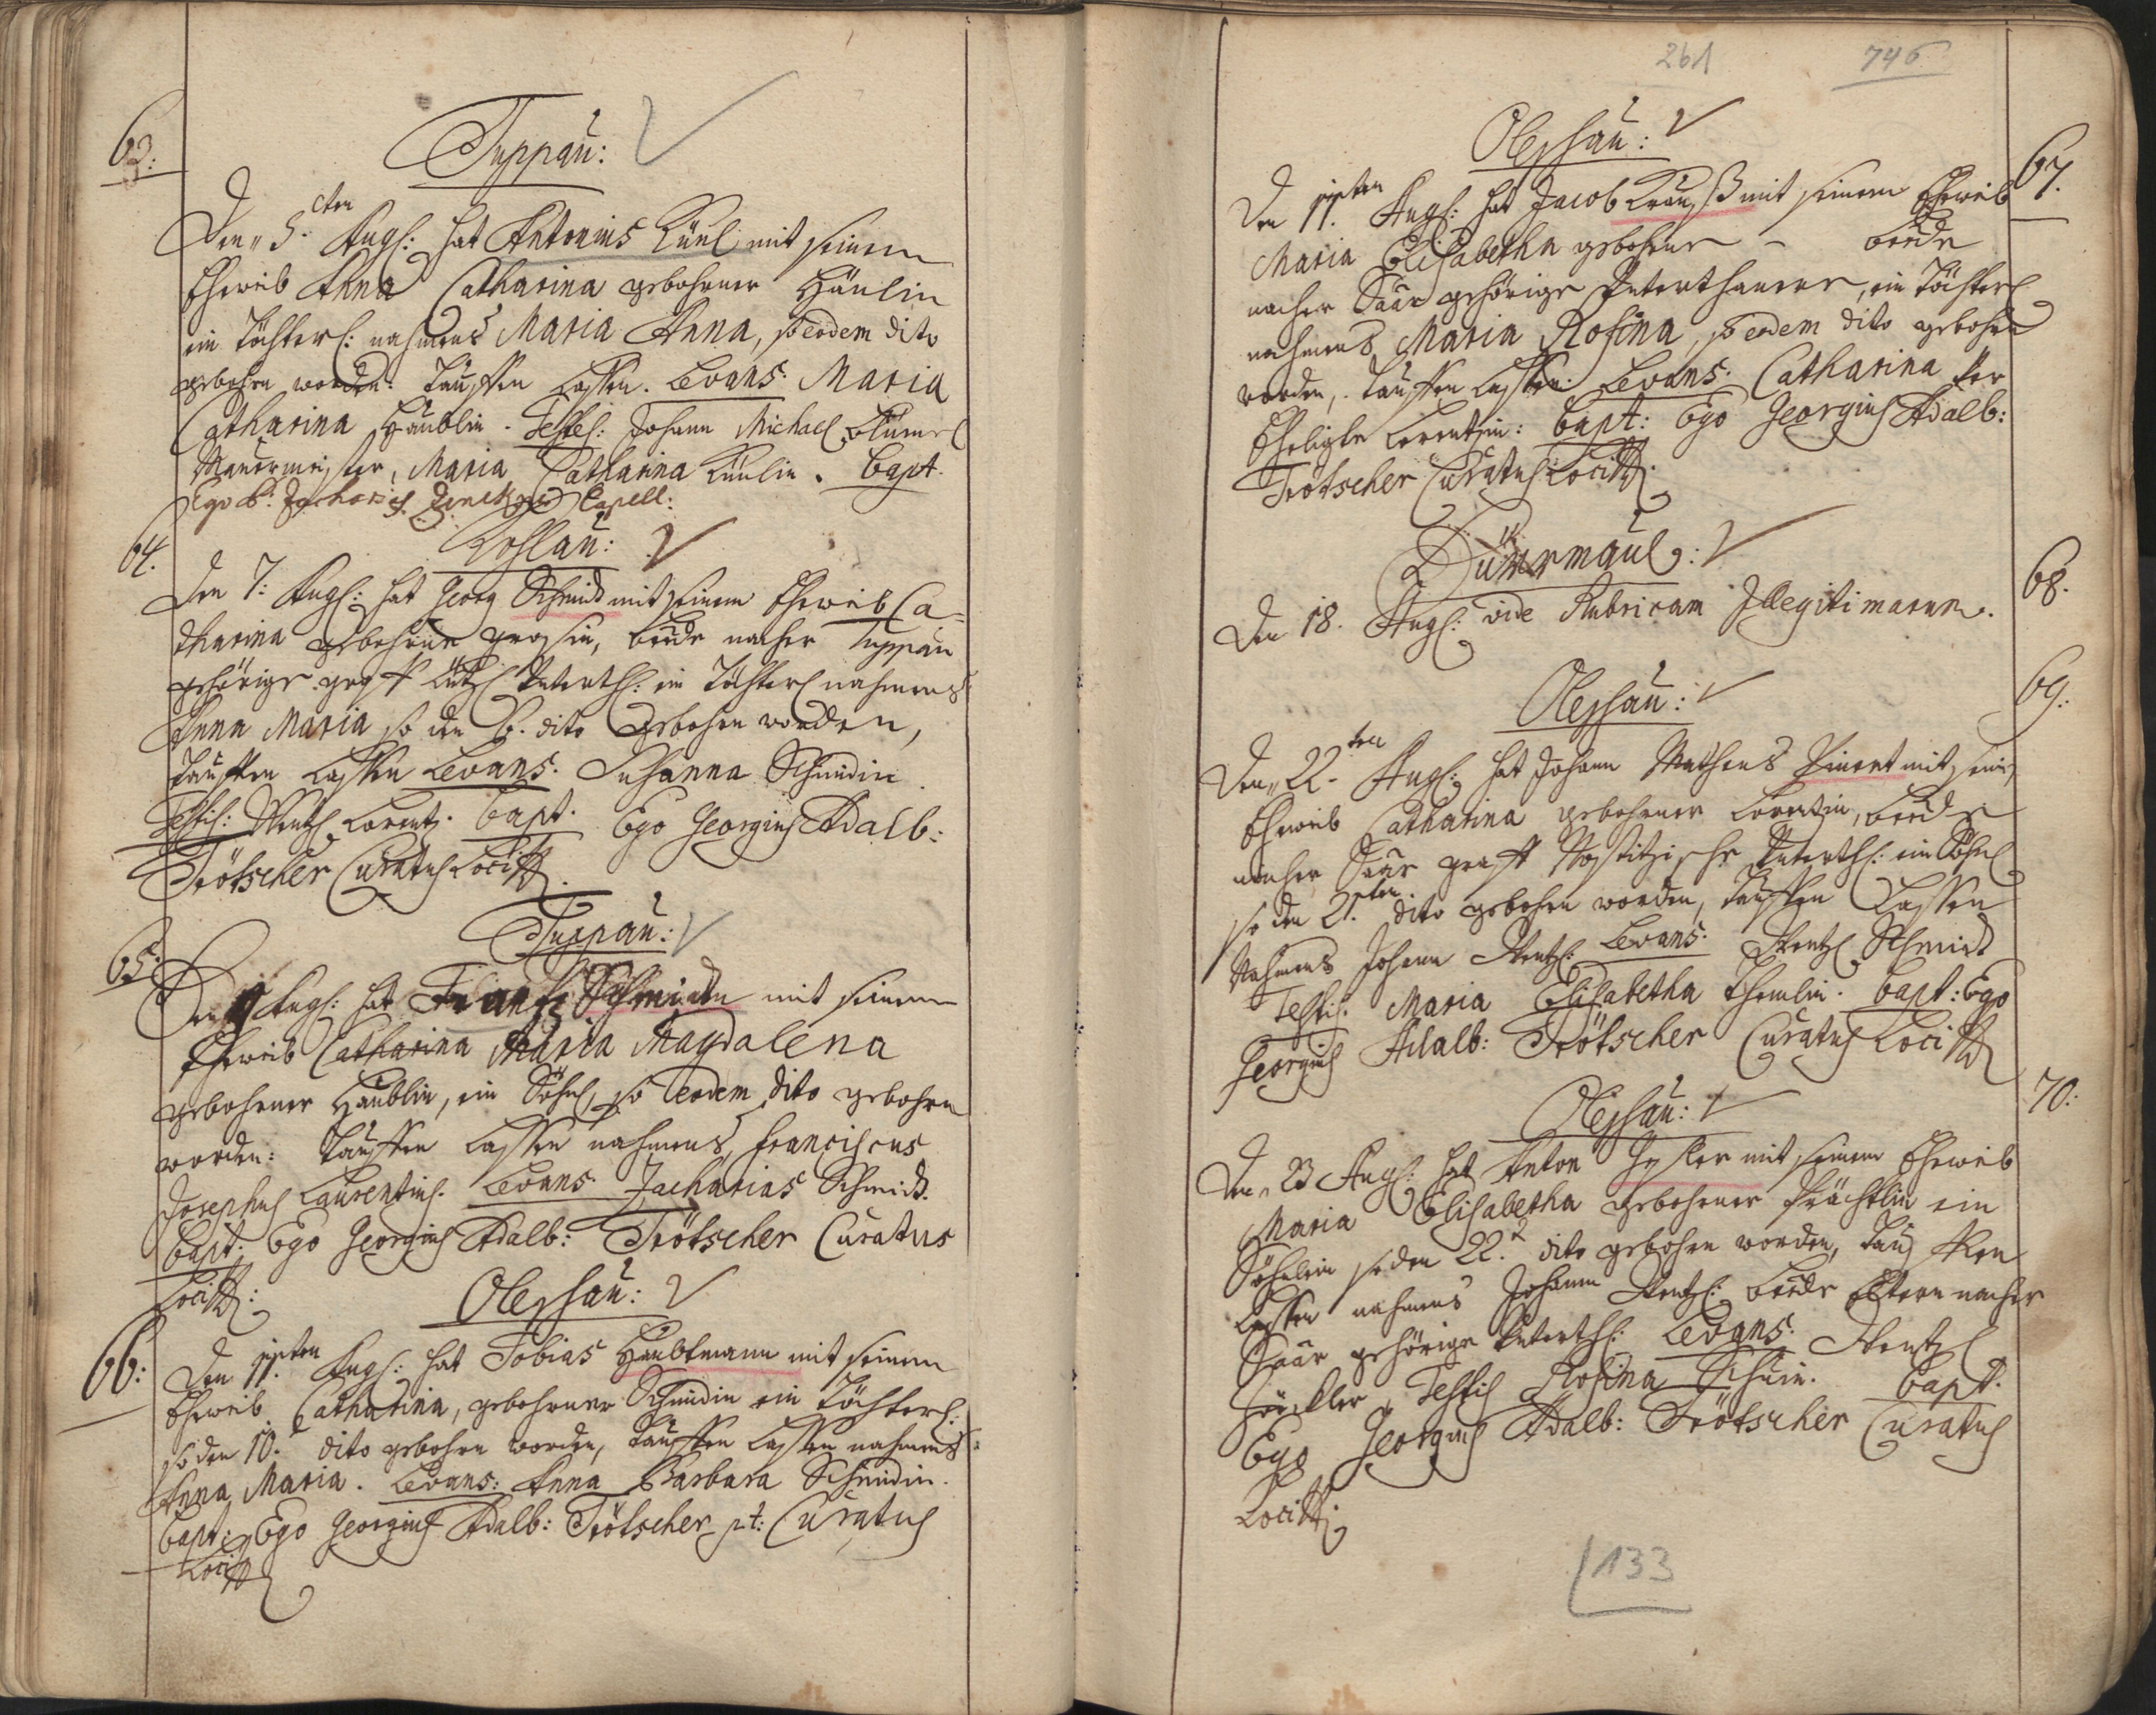 63:
Duppau:
Den 5.ten Aug: hat Antonius Künl mit seinem
Eheweib Anna Catharina gebohrner Häulin
ein Töchterl: nahmens Maria Anna, so eodem dito
gebohrn worden: Tauffen lassen. Levans: Maria
Catharina Häublin. Testes: Johann Michael
Maurermeister, Maria Catharina Künlin. Bapt.
Ego P. Zacharias Capell:
64.
Koslau:
Den 7: Aug: hat Georg Schmid mit seinem Eheweib Ca=
tharina gebohrne beede nacher Duppau
gehörige Unterth: ein Töchterl nahmens
Anna Maria so den 6. dito gebohrn worden,
Tauffen lassen Levans. Susanna Schmidin
Testis: Wentzl Lorentz. Bapt. Ego Georgius Adalb:
Trötscher Curatus Loci
65:
Duppau:
Den 9 Aug: hat Frantz Schmidt mit seinem
Eheweib Catharina Maria Magdalena
gebohrner Häublin, ein Söhnl, so eodem dito gebohrn
worden: Tauffen lassen nahmens Franciscus
Josephus Laurentius. Levans Zacharias Schmidt.
Bapt: Ego Georgius Adalb: Trötscher Curatus
Loci
Oleschau:
66:
Den 11.ten Aug: hat Tobias Haubtmann mit seinem
Eheweib Catharina, gebohrner Schmidin ein Töchterl:
so den 10. dito gebohrn worden, Tauffen lassen nahmens
Anna Maria. Levans: Anna Barbara Schmidin.
Bapt: Ego Georgius Adalb: Trötscher p.t: Curatus
Loci
261 746
Oleschau:
67.
Den 11.ten Aug: hat Jacob Krauß mit seinem Eheweib
Maria Elisabetha gebohrner – beede
nacher Saar gehörige Unterthanen, ein Töchterl
nahmens Maria Rosina, so eodem dito gebohrn
worden, Tauffen lassen: Levans: Catharina Ver
Eheligte Lorentzin: Bapt: Ego Georgius Adalb:
Trötscher Curatus Loci
Dürrmaul:
68.
Den 18. Aug: vide Rubricam Illegitimarum.
Oleschau:
69.
Den 22.ten Aug: hat Johann Matheus Pinert mit sein
Eheweib Catharina gebohrner Lorentzin, beede
nacher Saar Nostitzische Unterth: ein Söhnl
so den 21.ten dito gebohrn worden, Tauffen lassen
Nahmens Johann Wentzl: Levans: Wentzl Schmidt
Testis: Maria Elisabetha Bapt: Ego
Georgius Adalb: Trötscher Curatus Loci
Oleschau:
70.
Den 23 Aug: hat Anton mit seinem Eheweib
Maria Elisabetha gebohrner ein
Söhnlein so den 22. dito gebohrn worden, Tauffen
Lassen nahmens Johann Wentzl: beede Eltern nacher
Saar gehörige Unterth: Levans: Wentzl
Testis Rosina Bapt.
Ego Georgius Adalb: Trötscher Curatus
Loci
133